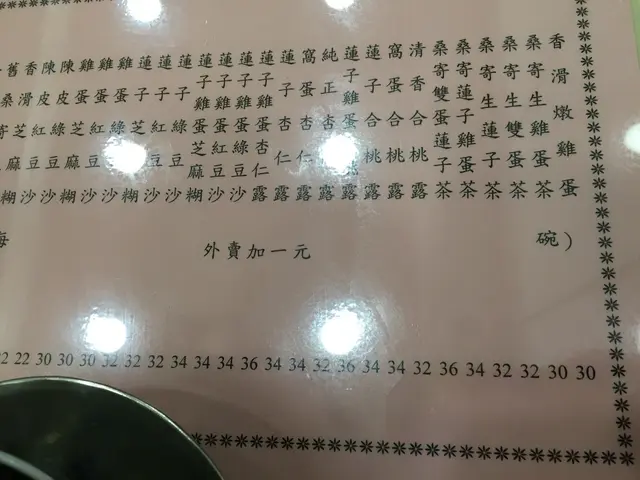 香滑燉雞蛋
桑寄生雞蛋茶
桑寄生雙蛋茶
桑寄生蓮子茶
桑寄蓮子雞蛋茶
桑寄雙蛋蓮子茶
清香合桃露
窩蛋合桃露
蓮子合桃露
蓮子雞蛋合桃露
純正杏仁露
窩蛋杏仁露
蓮子杏仁露
蓮子雞蛋杏仁露
蓮子雞蛋綠豆沙
蓮子雞蛋紅豆沙
蓮子雞蛋芝麻糊
蓮子綠豆沙
蓮子紅豆沙
蓮子芝麻糊
雞蛋綠豆沙
雞蛋紅豆沙
雞蛋芝麻糊
陳皮綠豆沙
陳皮紅豆沙
香滑芝麻糊
每 外賣加一元 碗）
22 22 30 30 30 32 32 32 34 34 34 36 34 34 32 36 34 34 32 36 34 32 32 30 30